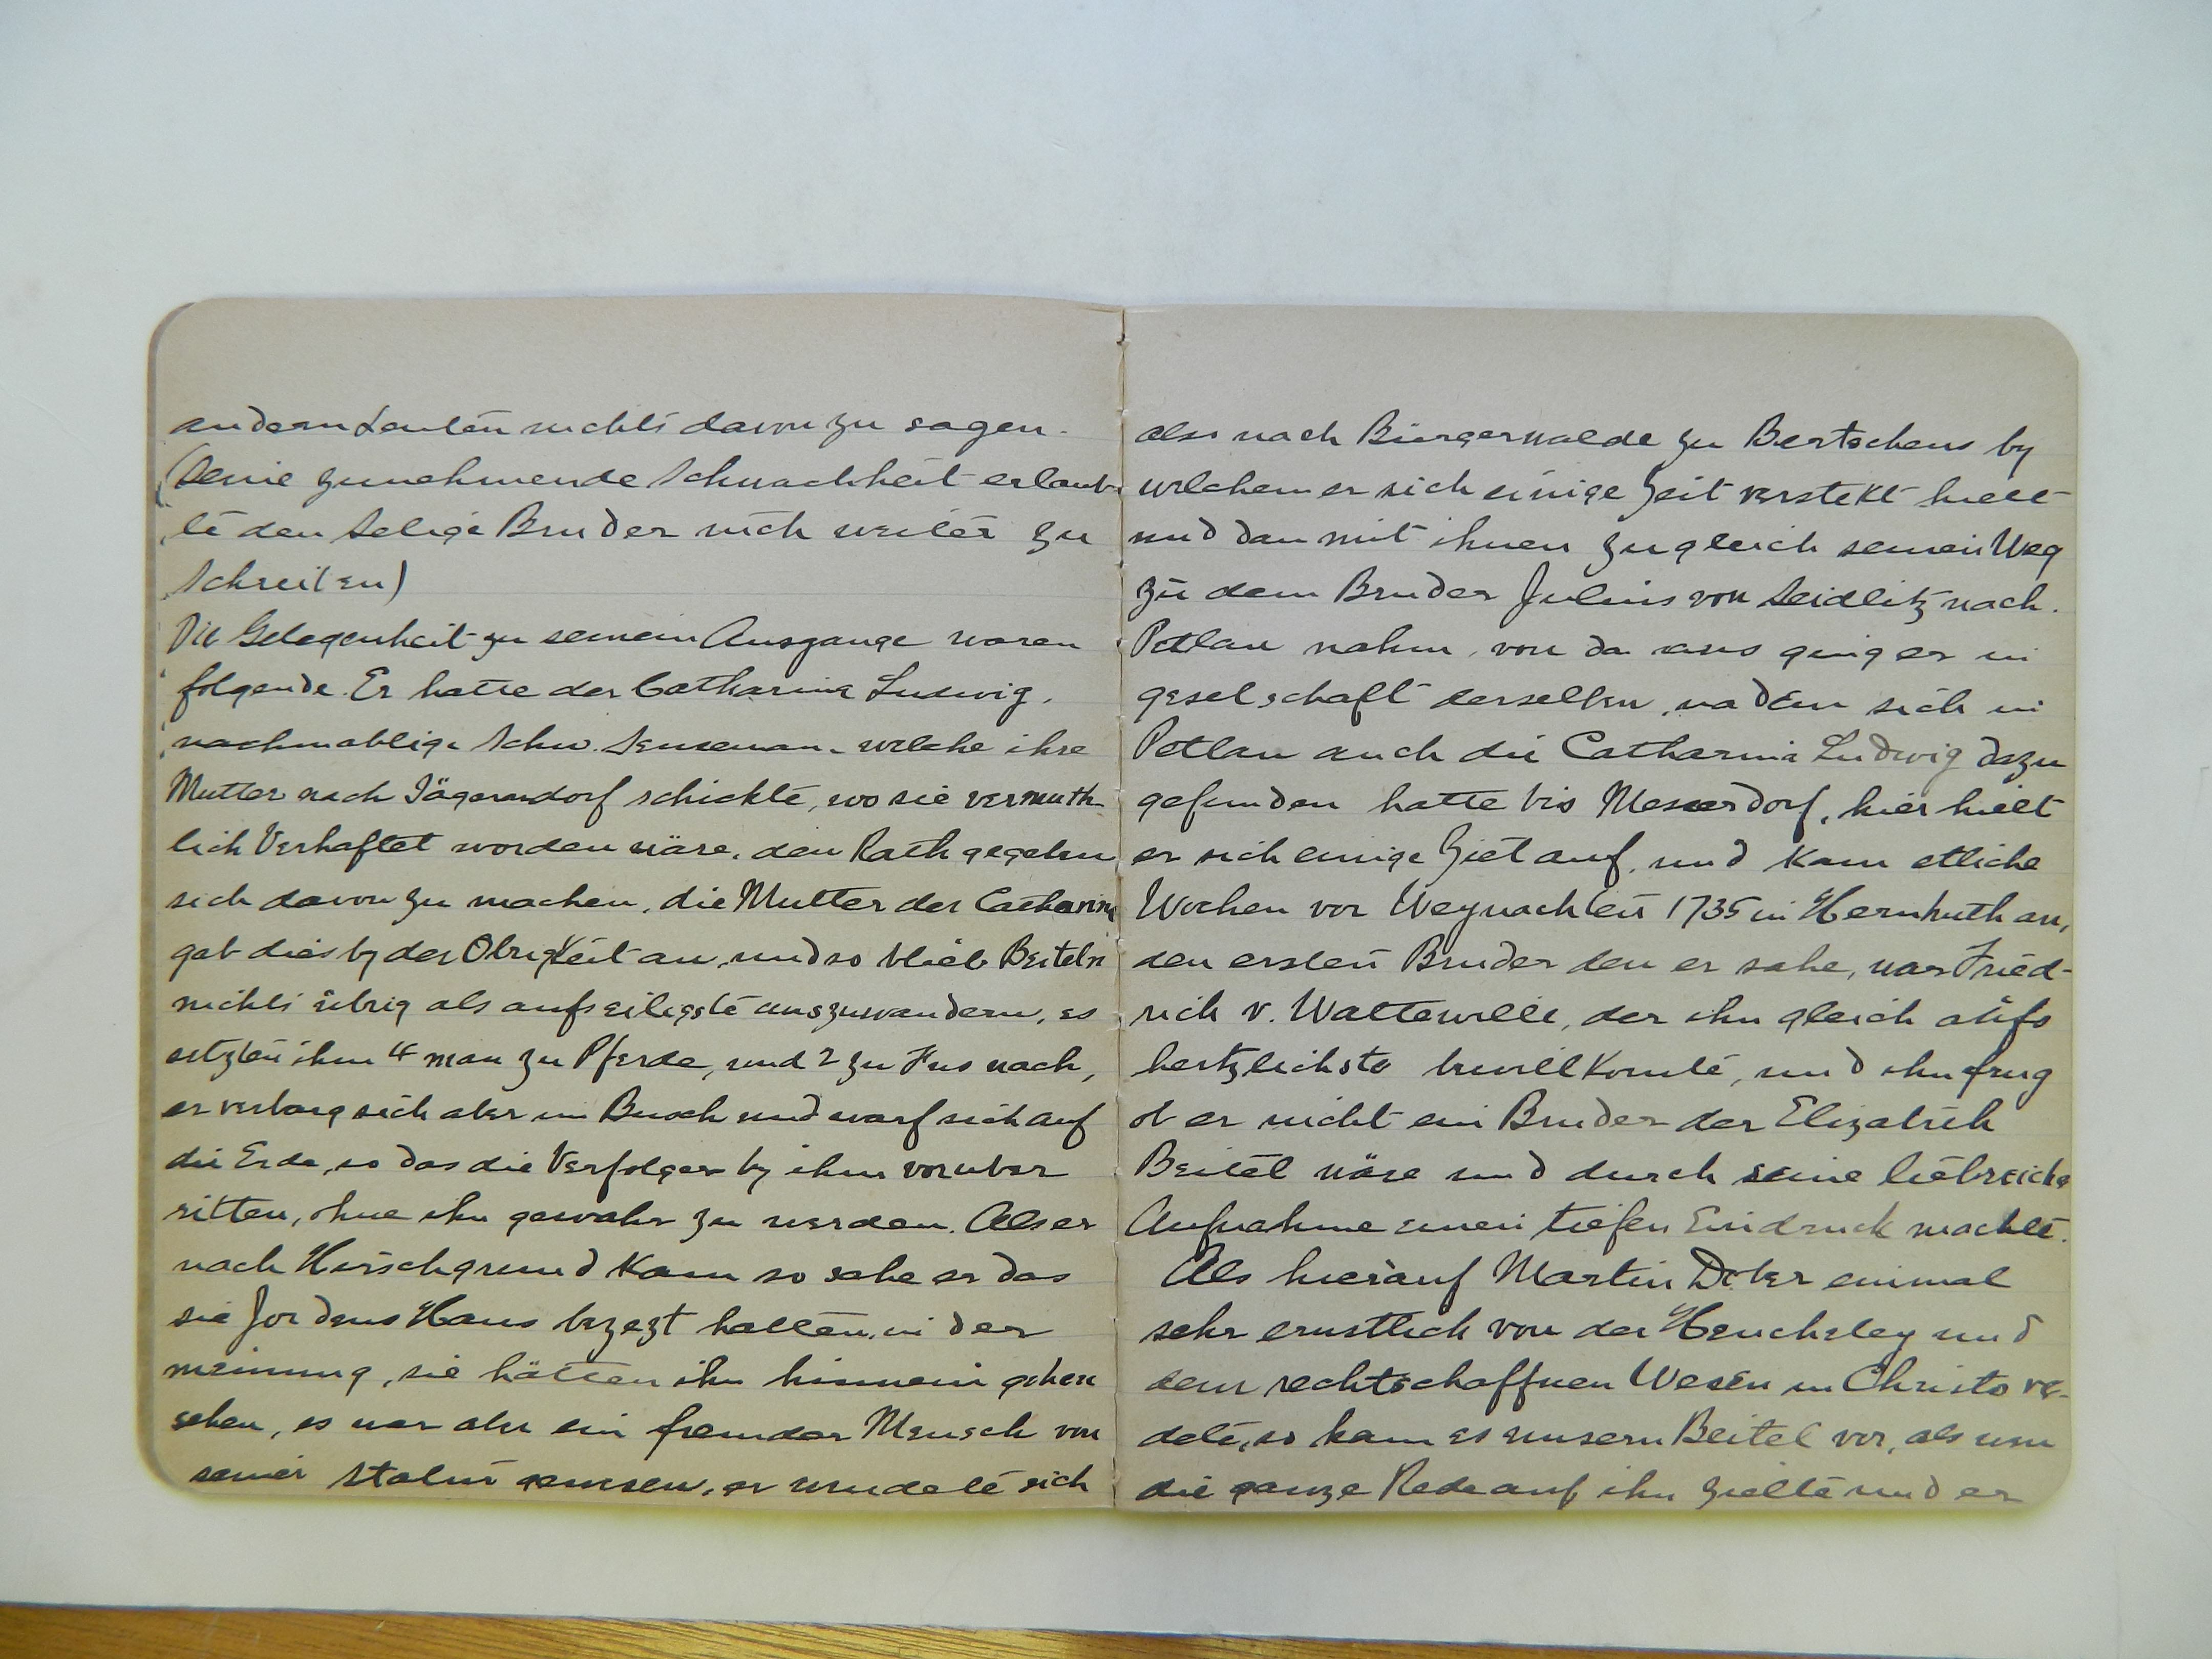 andern Leuten nichts davon zu sagen.
(Seine zunehmende Schwachheit erlaub-
te den Selige Bruder nich weiter zu
Schreiben)
Die Gelegenheit zu seinem Ausgange waren
folgende. Er hatte der Catharina Ludwig,
nachmahlige Schw. Senseman, welche ihre
Mutter nach Jägerndorf schickte, wo sie vermuth-
lich Verhaftet worden wäre, den Rath gegeben
sich davon zu machen, die Mutter der Catharina
gab dies by der Obrigkeit an, und so blieb Beiteln
nichts übrig als aufs eiligste auszuwandern, es
setzten ihm 4 man zu Pferde, und 2 zu Fus nach,
er verbarg sich aber im Busch und warf sich auf
die Erde, so das die Verfolger by ihm voruber
ritten, ohne ihn gewahr zu werden. Als er
nach Hirschgrund Kam so sahe er das
sie Jordens Haus besezt hatten, in der
meinung, sie hätten ihn hinnein gehen
sehen, es war aber ein fremder Mensch von
seiner Statur gewesen, er wendete sich
also nach Bürgerwalde zu Bertschens by
welchem er sich einige Zeit verstekt hielt
und dan mit ihnen zugleich seinen Weg
zu dem Bruder Julius von Seidlitz nach
Petlau nahm, von da aus ging er in
geselschaft derselben, nadem sich in
Petlau auch die Catharina Ludwig dazu
gefunden hatte bis Messerdorf, hier hielt
er sich einige Ziet auf, und Kam etliche
Wochen vor Weynachten 1735 in Hernhuth an,
den ersten Bruder den er sahe, war Fried-
rich v. Wattewille, der ihn gleich aufs
hertzlichste bewillKomte, und ihn frug
ob er nicht ein Bruder der Elizabeth
Beitel wäre und durch seine liebreiche
Aufnahme einen tiefen Eindruck machte.
Als hierauf Martin Dober einmal
sehr ernstlich von der Heucheley und
dem rechtschaffnen Wesen in Christo re-
dete, so kam es unsern Beitel vor, als wen
die ganze Rede auf ihn zielte und er